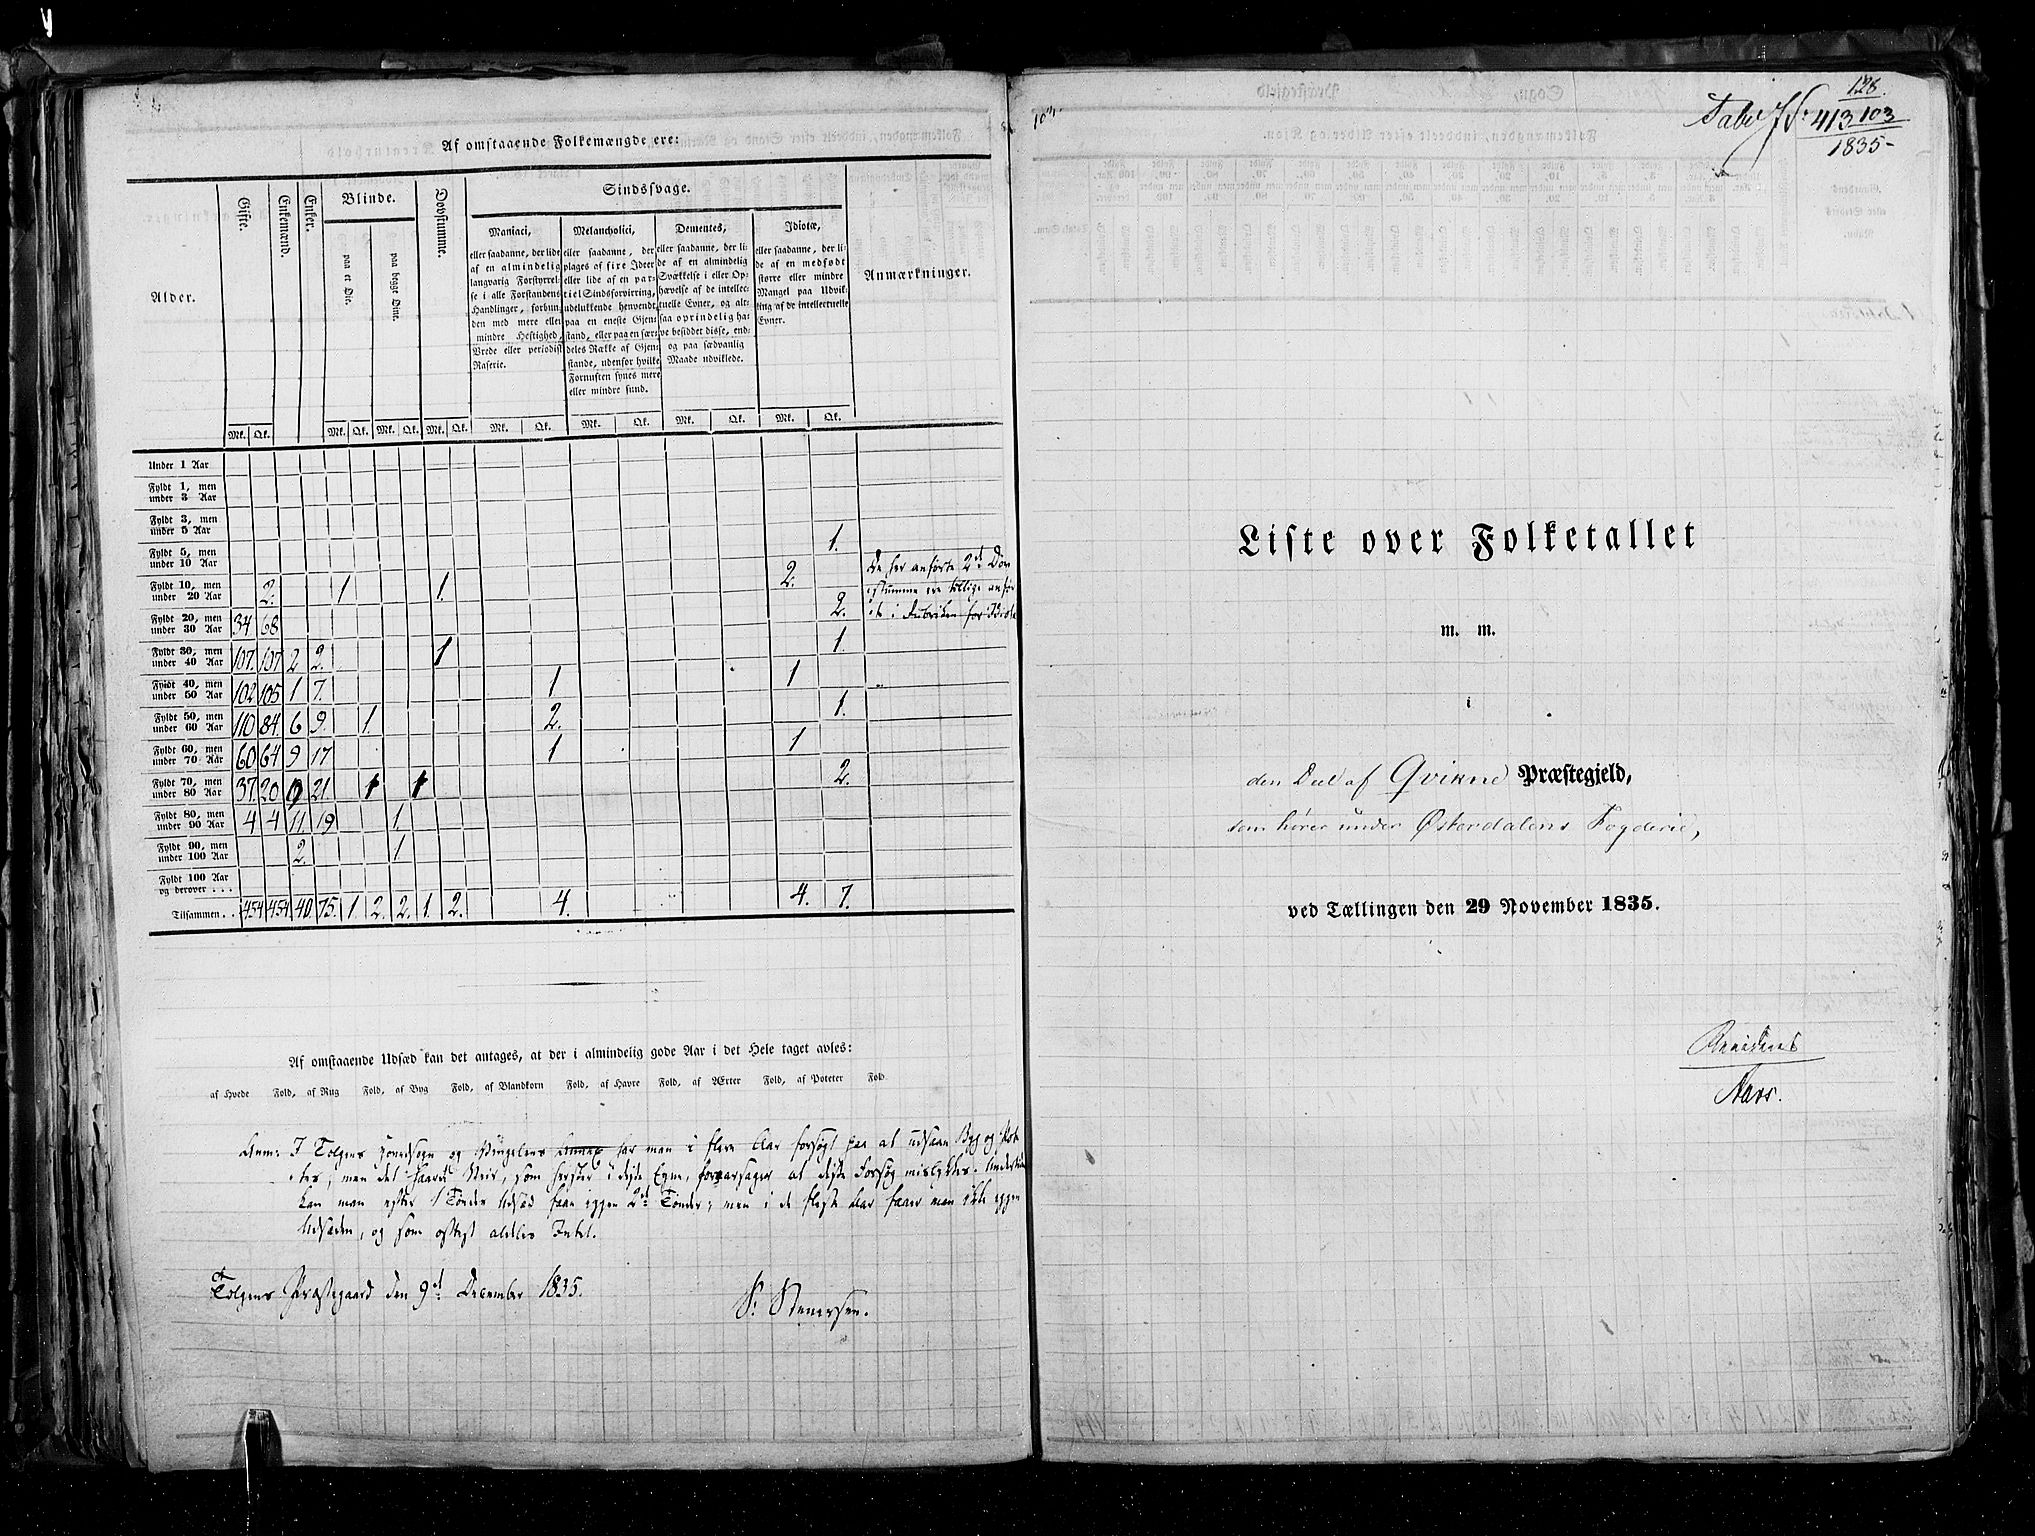 Af omstaaende Folkemængde ere:
Alder.
Gifte.
Enkemænd.
Enker.
Blinde.
paa et Øie.
paa begge Øine.
Døvstumme.
Sindssvage.
Maniaci,
eller saadanne, der lide
af en almindelig
langvarig Forstyrrel-
se i alle Forstandens
Handlinger, forbun-
den med mere eller
mindre Heftighed,
Vrede eller periodisk
Raserie.
Melancholici,
eller saadanne, der
plages af fixe Ideer
eller lide af en par-
tiel Sindsforvirring,
udelukkende henvendt
paa en eneste Gjen-
stand, eller paa en sær-
deles Række af Gjen-
stande, udenfor hvilke
Fornuften synes mere
eller mindre sund.
Dementes,
eller saadanne, der li-
de af en almindelig
Svækkelse i eller Op-
hævelse af de intellec-
tuelle Evner, og alt-
saa oprindelig ha-
ve besiddet disse, end-
og paa sædvanlig
Maade udviklede.
Idiotæ,
eller saadanne, der li-
de af en medfødt
større eller mindre
Mangel paa Udvik-
ling af de intellectuelle
Evner.
Anmærkninger.
Mk. Qk. Mk. Qk. Mk. Qk. Mk. Qk. Mk. Qk. Mk. Qk. Mk. Qk. Mk. Qk.
Under 1 Aar
Fyldt 1, men
under 3 Aar
Fyldt 3, men
under 5 Aar
Fyldt 5, men
under 10 Aar 1.
Fyldt 10, men
under 20 Aar 2. 1 1. 2.
Fyldt 20, men
under 30 Aar 34 68 2.
Fyldt 30, men
under 40 Aar 107. 107 2 2. 1 1.
Fyldt 40, men
under 50 Aar 102 105 1 7. 1 1
Fyldt 50, men
under 60 Aar 110 84 6 9. 1. 2. 1.
Fyldt 60, men
under 70 Aar 60 64 9 17 1 1
Fyldt 70, men
under 80 Aar 37. 20 9 21. 1 1 2.
Fyldt 80, men
under 90 Aar 4 4 11. 19 1.
Fyldt 90, men
under 100 Aar 2. 1
Fyldt 100 Aar
og derover . . .
Tilsammen . . 454 454 40. 75. 1 2. 2. 1. 2. 4. 4. 7.
De her anførte 2de Døv
stumme ere tillige anfør
te i Rubriken for
Af omstaaende Udsæd kan det antages, at der i almindelig gode Aar i det Hele taget avles:
af Hvede Fold, af Rug Fold, af Byg Fold, af Blandkorn Fold, af Havre Fold, af Ærter Fold, af Poteter Fold.
Anm: I Tolgens Hovedsogn og Vingelens Annex har man i flere Aar forsøgt paa at udsaae Byg og Pot-
etes, men det haarde Veir, som hersker i disse Egne, foraarsager at disse Forsøg mislykkes. Undertiden
kan man efter 1 Tønde Udsæd faae igjen 2de Tønder; men i de fleste Aar faaer man ikke igjen
Udsæden, og som oftest aldeles Intet.
Tolgens Præstegaard den 9de December 1835.
S: Stenersen.
128.
Tabel No 413 103
1835-
103.
Liste over Folketallet
m. m.
i
den Deel af Qvikne Præstegjeld,
som hører under Østerdalens Fogderie,
ved Tællingen den 29 November 1835.
Aars.